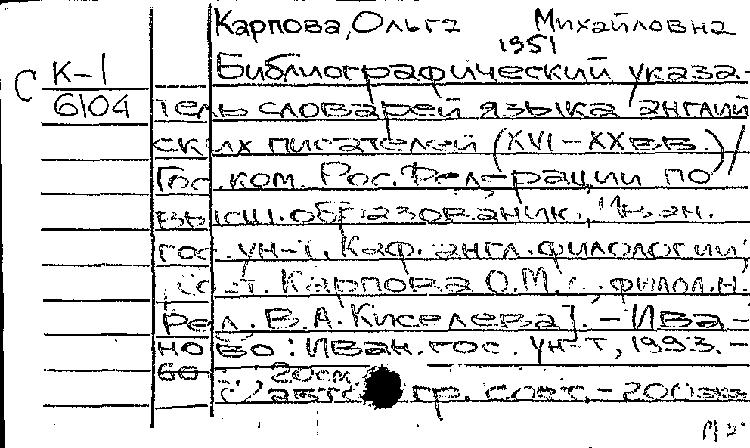 Карпова, Ольга Михайловна
1951
С К-1 Библиографический указа-
6104 тель словарей языка англий
ских писателей (XVI-XXвв.) /
Гос. ком. Рос. Федерации по
высш. образованию, Иван.
гос. ун-т, Каф. англ. филологии;
Сост. Карпова О.М., филол.н.
Ред. В.А. Киселева]. - Ива-
ново: Иван. гос. ун-т, 1993. -
60 20см
авто гр. сост. - 200экз